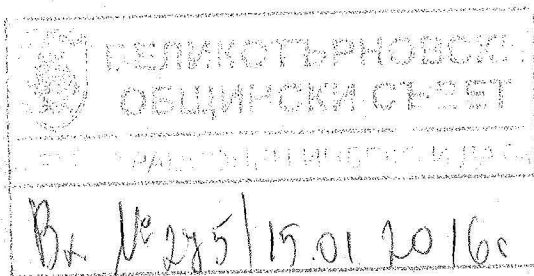 ВЕЛИКОТЪРНОВСКИ
ОБЩИНСКИ СЪВЕТ
Вх № 275/15.01.2016г